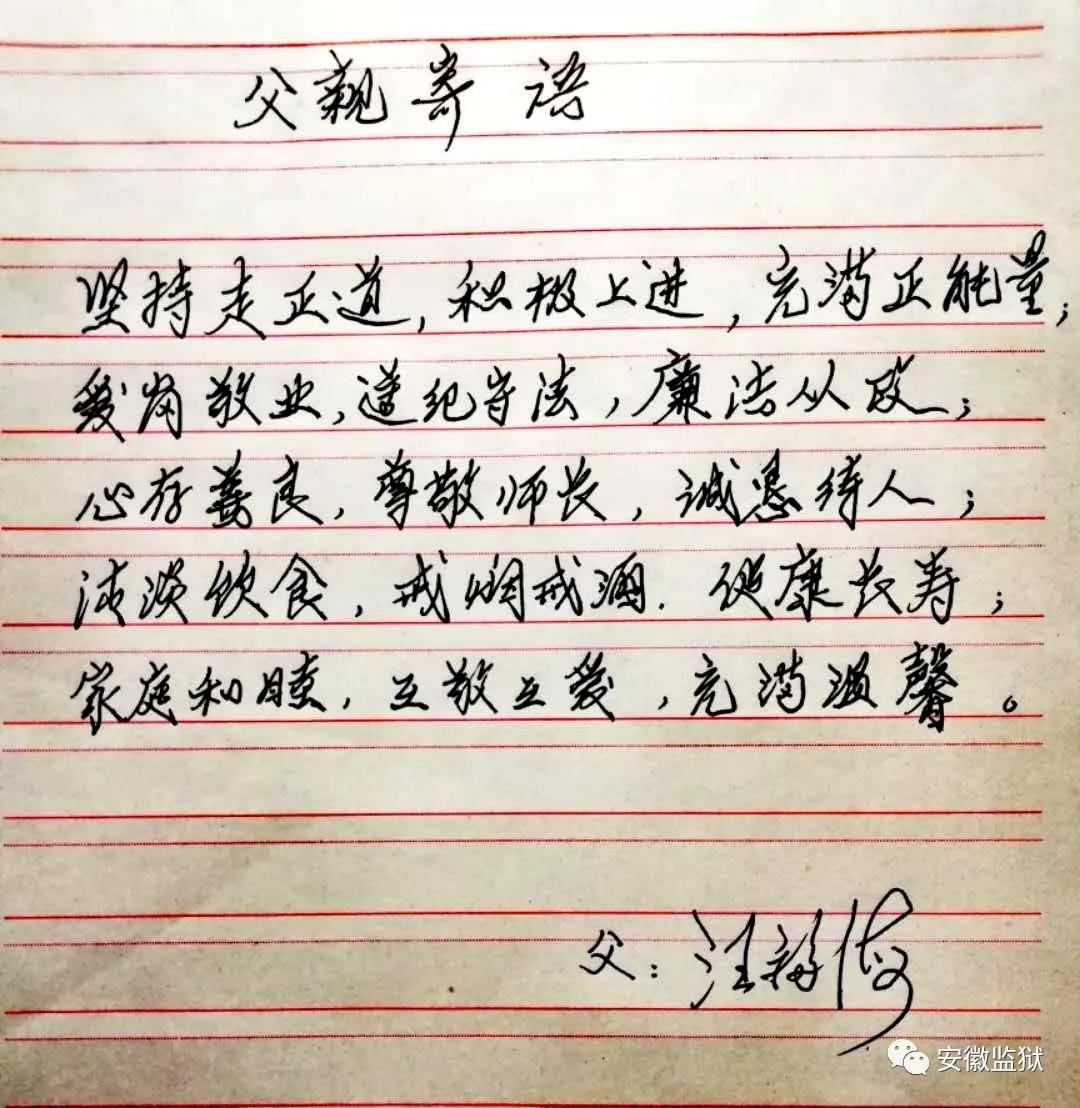 父亲寄语
坚持走正道,积极上进,充满正能量;
爱岗敬业,遵纪守法,廉洁从政;
心存善良,尊敬师长,诚恳待人;
清淡饮食,戒烟戒酒.健康长寿;
家庭和睦,互敬互爱,充满温馨。
父:汪
安徽监狱